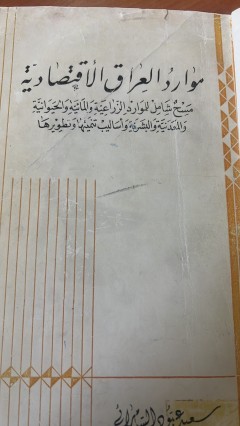 موارد العراق الاقتصادية
مسح شامل للموارد الزراعية والمائية والحيوانية
والمعدنية والبشرية وأساليب تنميتها وتطويرها
سعيد عبود السامرائي